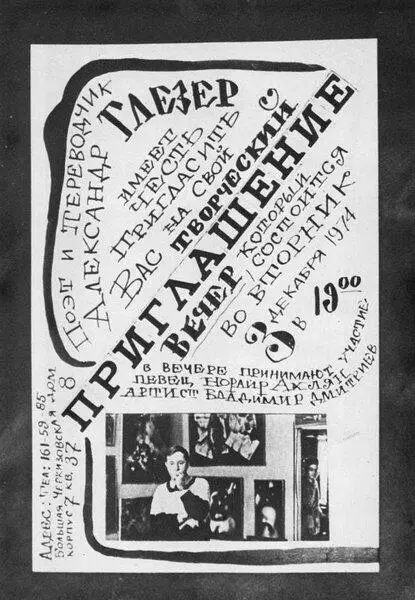 ПРИГЛАШЕНИЕ
Поэт и переводчик
Александр
ГЛЕЗЕР
имеет
честь
пригласить
Вас на свой
творческий
вечер который
состоится
во вторник
3 декабря 1974
в 19 00
в вечере принимают участие
певец
артист Владимир Дмитриев
Адрес: тел: 161-59-85
Большая Черкизовская дом 8
корпус 7 кв. 37